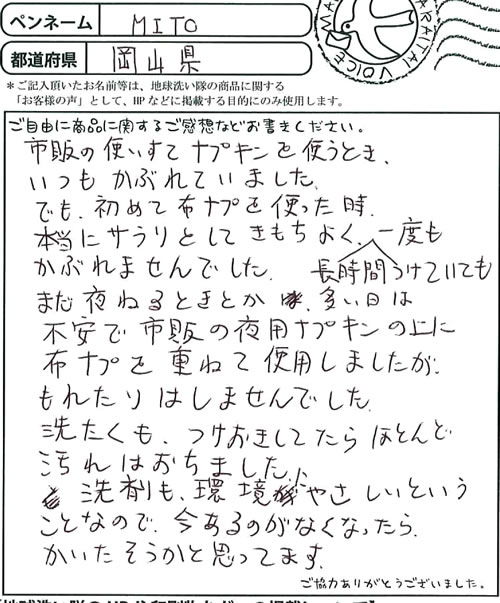 ペンネーム MITO
都道府県 岡山県
＊ご記入頂いたお名前等は、地球洗い隊の商品に関する
「お客様の声」として、HPなどに掲載する目的にのみ使用します。
ARAITAI VOICE
ご自由に商品に関するご感想などお書きください。
市販の使いすて ナプキンを使うとき、
いつも かぶれていました。
でも、初めて布ナプを使った時、
本当にサラリとして きもちよく、一度も
かぶれませんでした。 長時間つけていても
まだ 夜ねるときとか 多い日は
不安で 市販の夜用ナプキンの上に
布ナプを 重ねて使用しましたが、
もれたりはしませんでした。
洗たくも、つけおきしてたら ほとんど
汚れはおちました。
洗剤も、環境やさしいという
ことなので、今あるのがなくなったら、
かいたそうかと思ってます。
ご協力ありがとうございました。